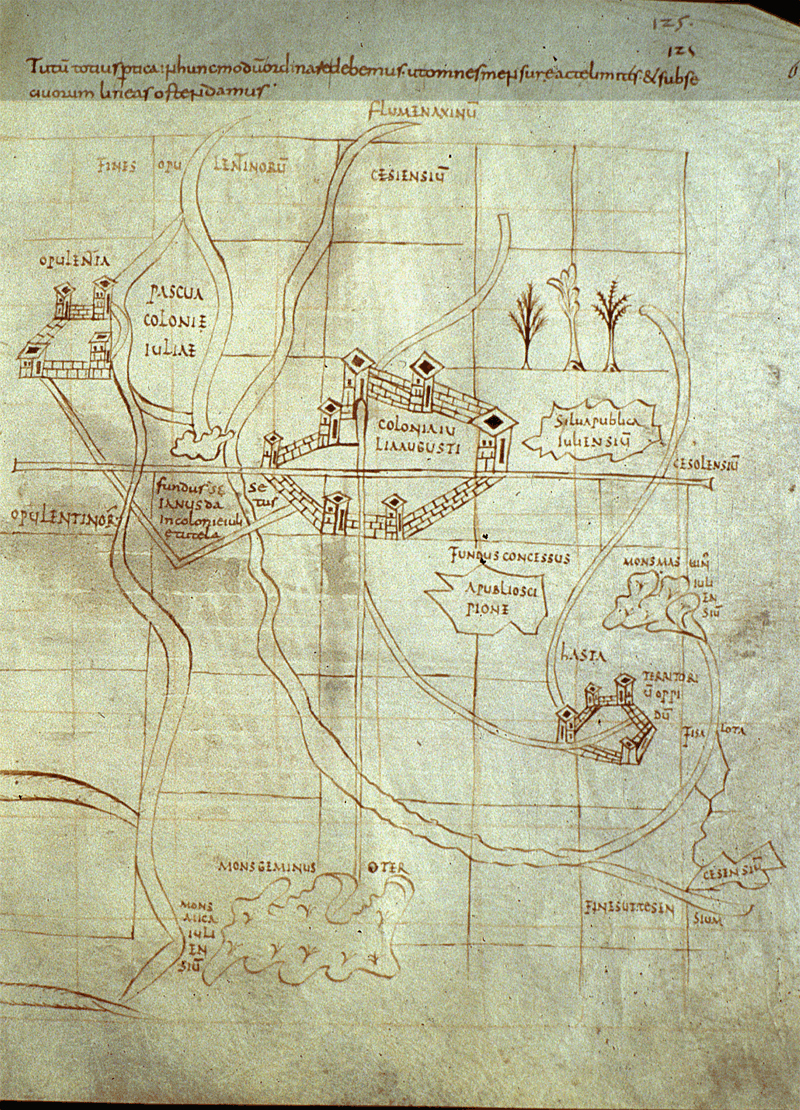 125.
121
Tutū totius
hunc modū ordinare debemus ut omnes mensurae acte limitis & subse
civorum lineas ostendamus
FLUMEN AXINŪ
FINES OPU LENTINORŪ
CESIENSIŪ
OPULENTIA
PASCUA
COLONIE
IULIAE
COLONIA IU
LIA AUGUSTI
SILVA PUBLICA
IULIENSIŪ
CESOLENSIŪ
fundus SE
IANUS DA
IN COLONIE IULI
E TUTELA
SE
TUS
OPULENTINOR̄
FUNDUS CONCESSUS
A PUBLIO SCI
PIONE
MONS MAS
IULI
EN
SIŪ
HASTA
TERRITORI
Ū OPPI
DŪ
FISA LOTA
MONS GEMINUS
OTER
CESENSIŪ
MONS
IULI
EN
SIŪ
SIUM